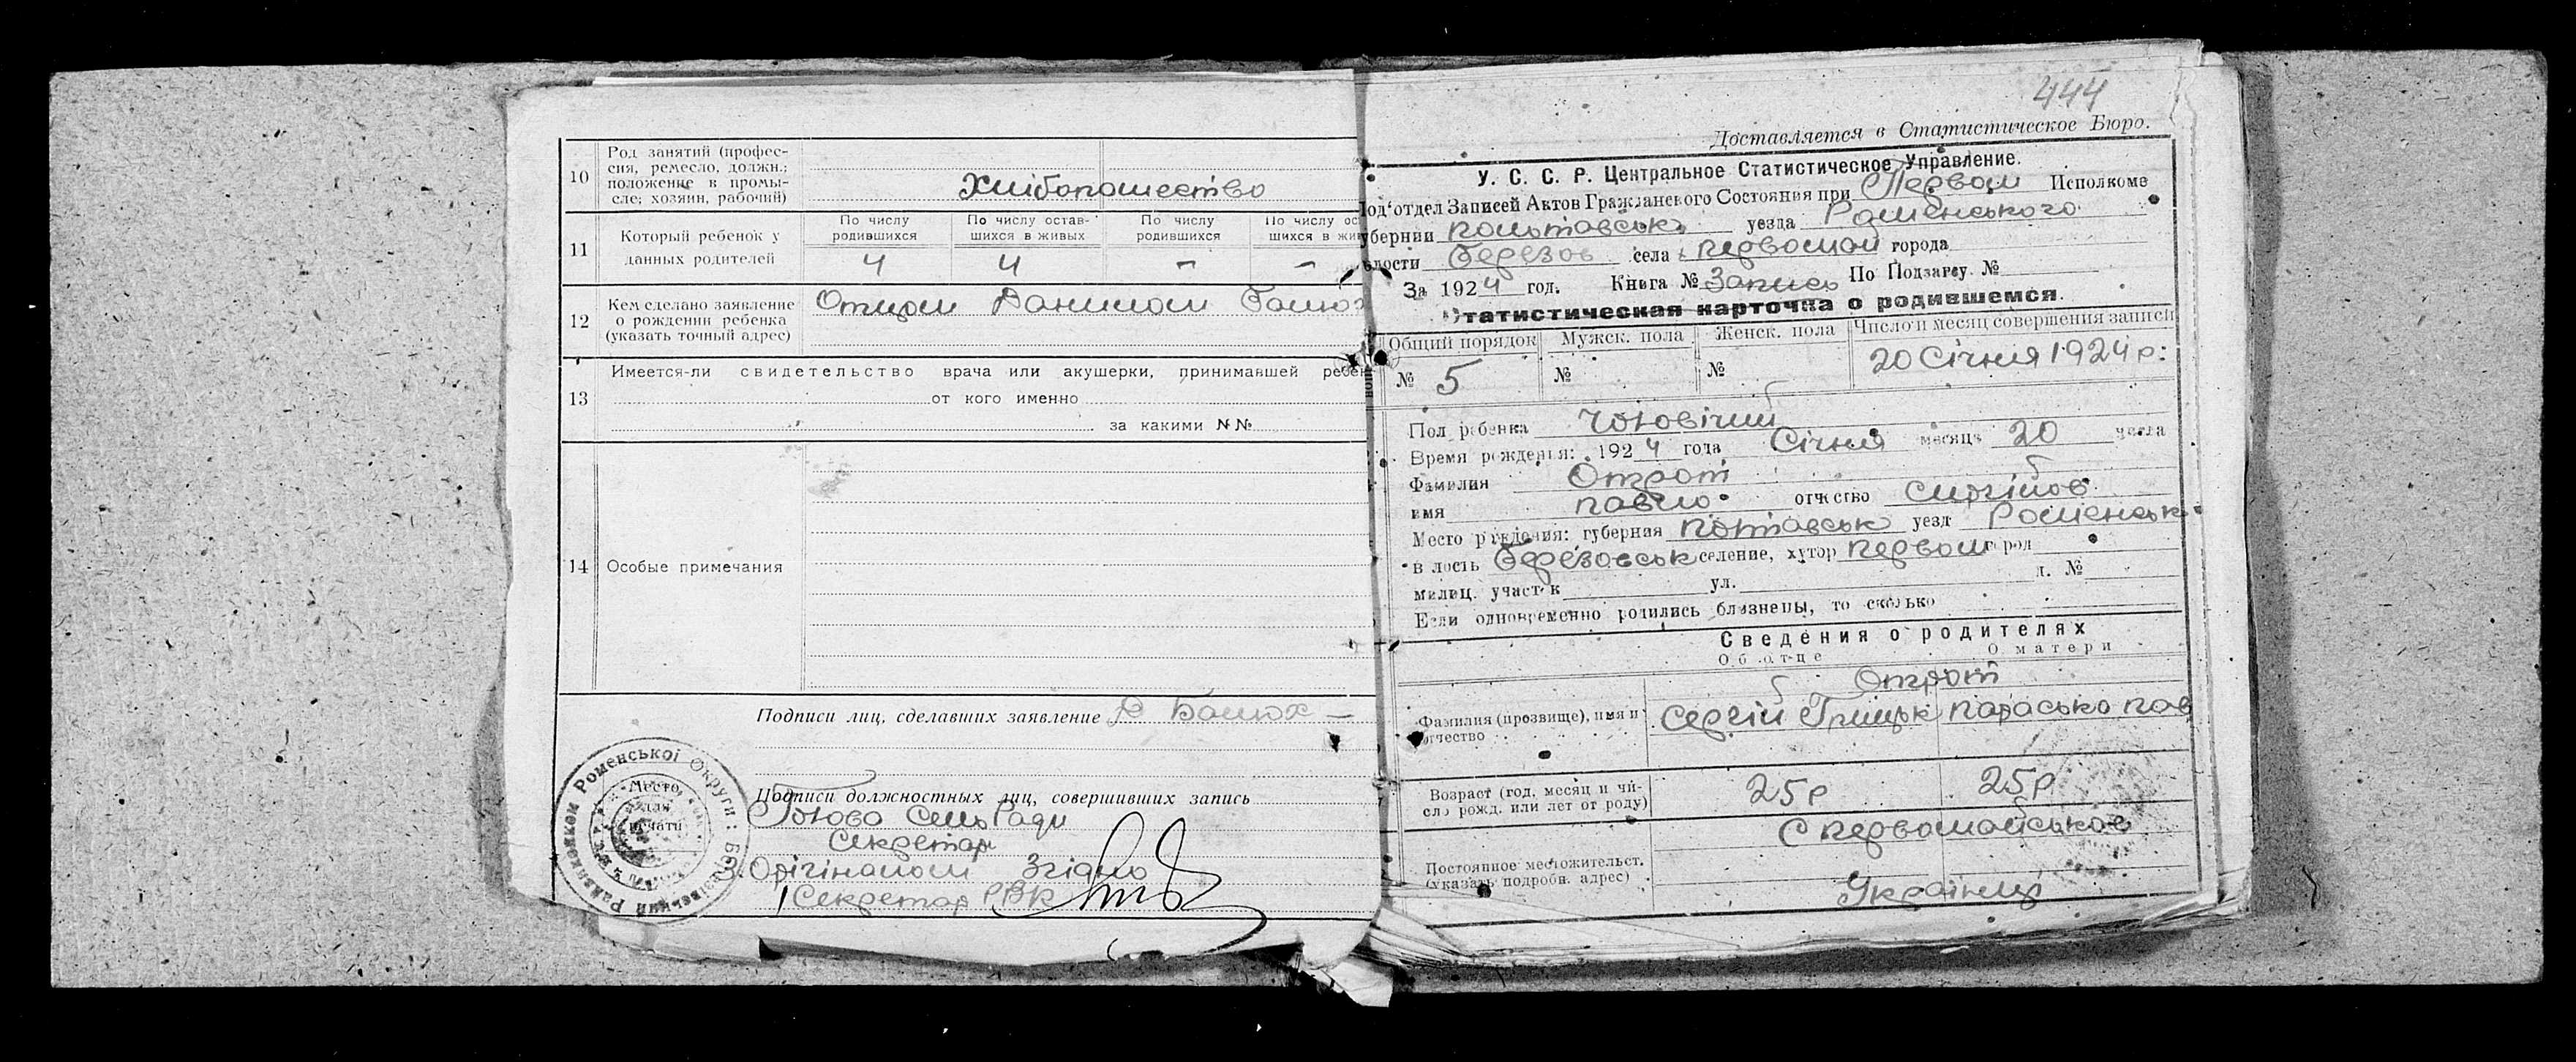 10 Род занятий (профес-
сия, ремесло, должн.;
положение в промы-
сле; хозяин, рабочий)
Хлібопашество
11 Который ребенок у
данных родителей
По числу
родившихся
По числу остав-
шихся в живых
По числу
родившихся
По числу ос
шихся в жи
4 4 – –
12 Кем сделано заявление
о рождении ребенка
(указать точный адрес)
Отцом Данилом
13 Имеется-ли свидетельство врача или акушерки, принимавшей ребен
от кого именно
за какими №№
14 Особые примечания
Подписи лиц, сделавших заявление Д
Подписи должностных лиц, совершивших запись
Голова СельРади
Секретар
З Орігіналом Згідно
Секретар РВК
Место
для
печати
Роменської Округи
444
Доставляется в Статистическое Бюро.
У. С. С. Р. Центральное Статистическое Управление.
Под'отдел Записей Актов Гражданского Состояния при Первом Исполкоме
убернии Полтавськ уезда Роменського
лости Березов села Первомай города
За 1924 год. Книга № Запись По Подзагсу №
Статистическая карточка о родившемся.
Общий порядок Мужск. пола Женск. пола Число и месяц совершения записи
№ 5 № № 20 Січня 1924 р.
Пол ребенка Чоловічий
Время рождения: 1924 года Січня месяца 20 числа
Фамилия Отрот
имя Павло отчество Сиргійов
Место рождения: губерния Полтавськ уезд Роменськ
волость Березовськ селение, хутор Первом город
милиц. участок ул. д. №
Если одновременно родились близнецы, то сколько
Сведения о родителях
Об отце О матери
Отрот
Фамилия (прозвище), имя и
отчество
Сергій Грицьк Парасько Пав
Возраст (год, месяц и чи-
сло рожд. или лет от роду)
25р 25р
С Первомайськов
Постоянное местожительст.
(указать подробн. адрес)
Українці